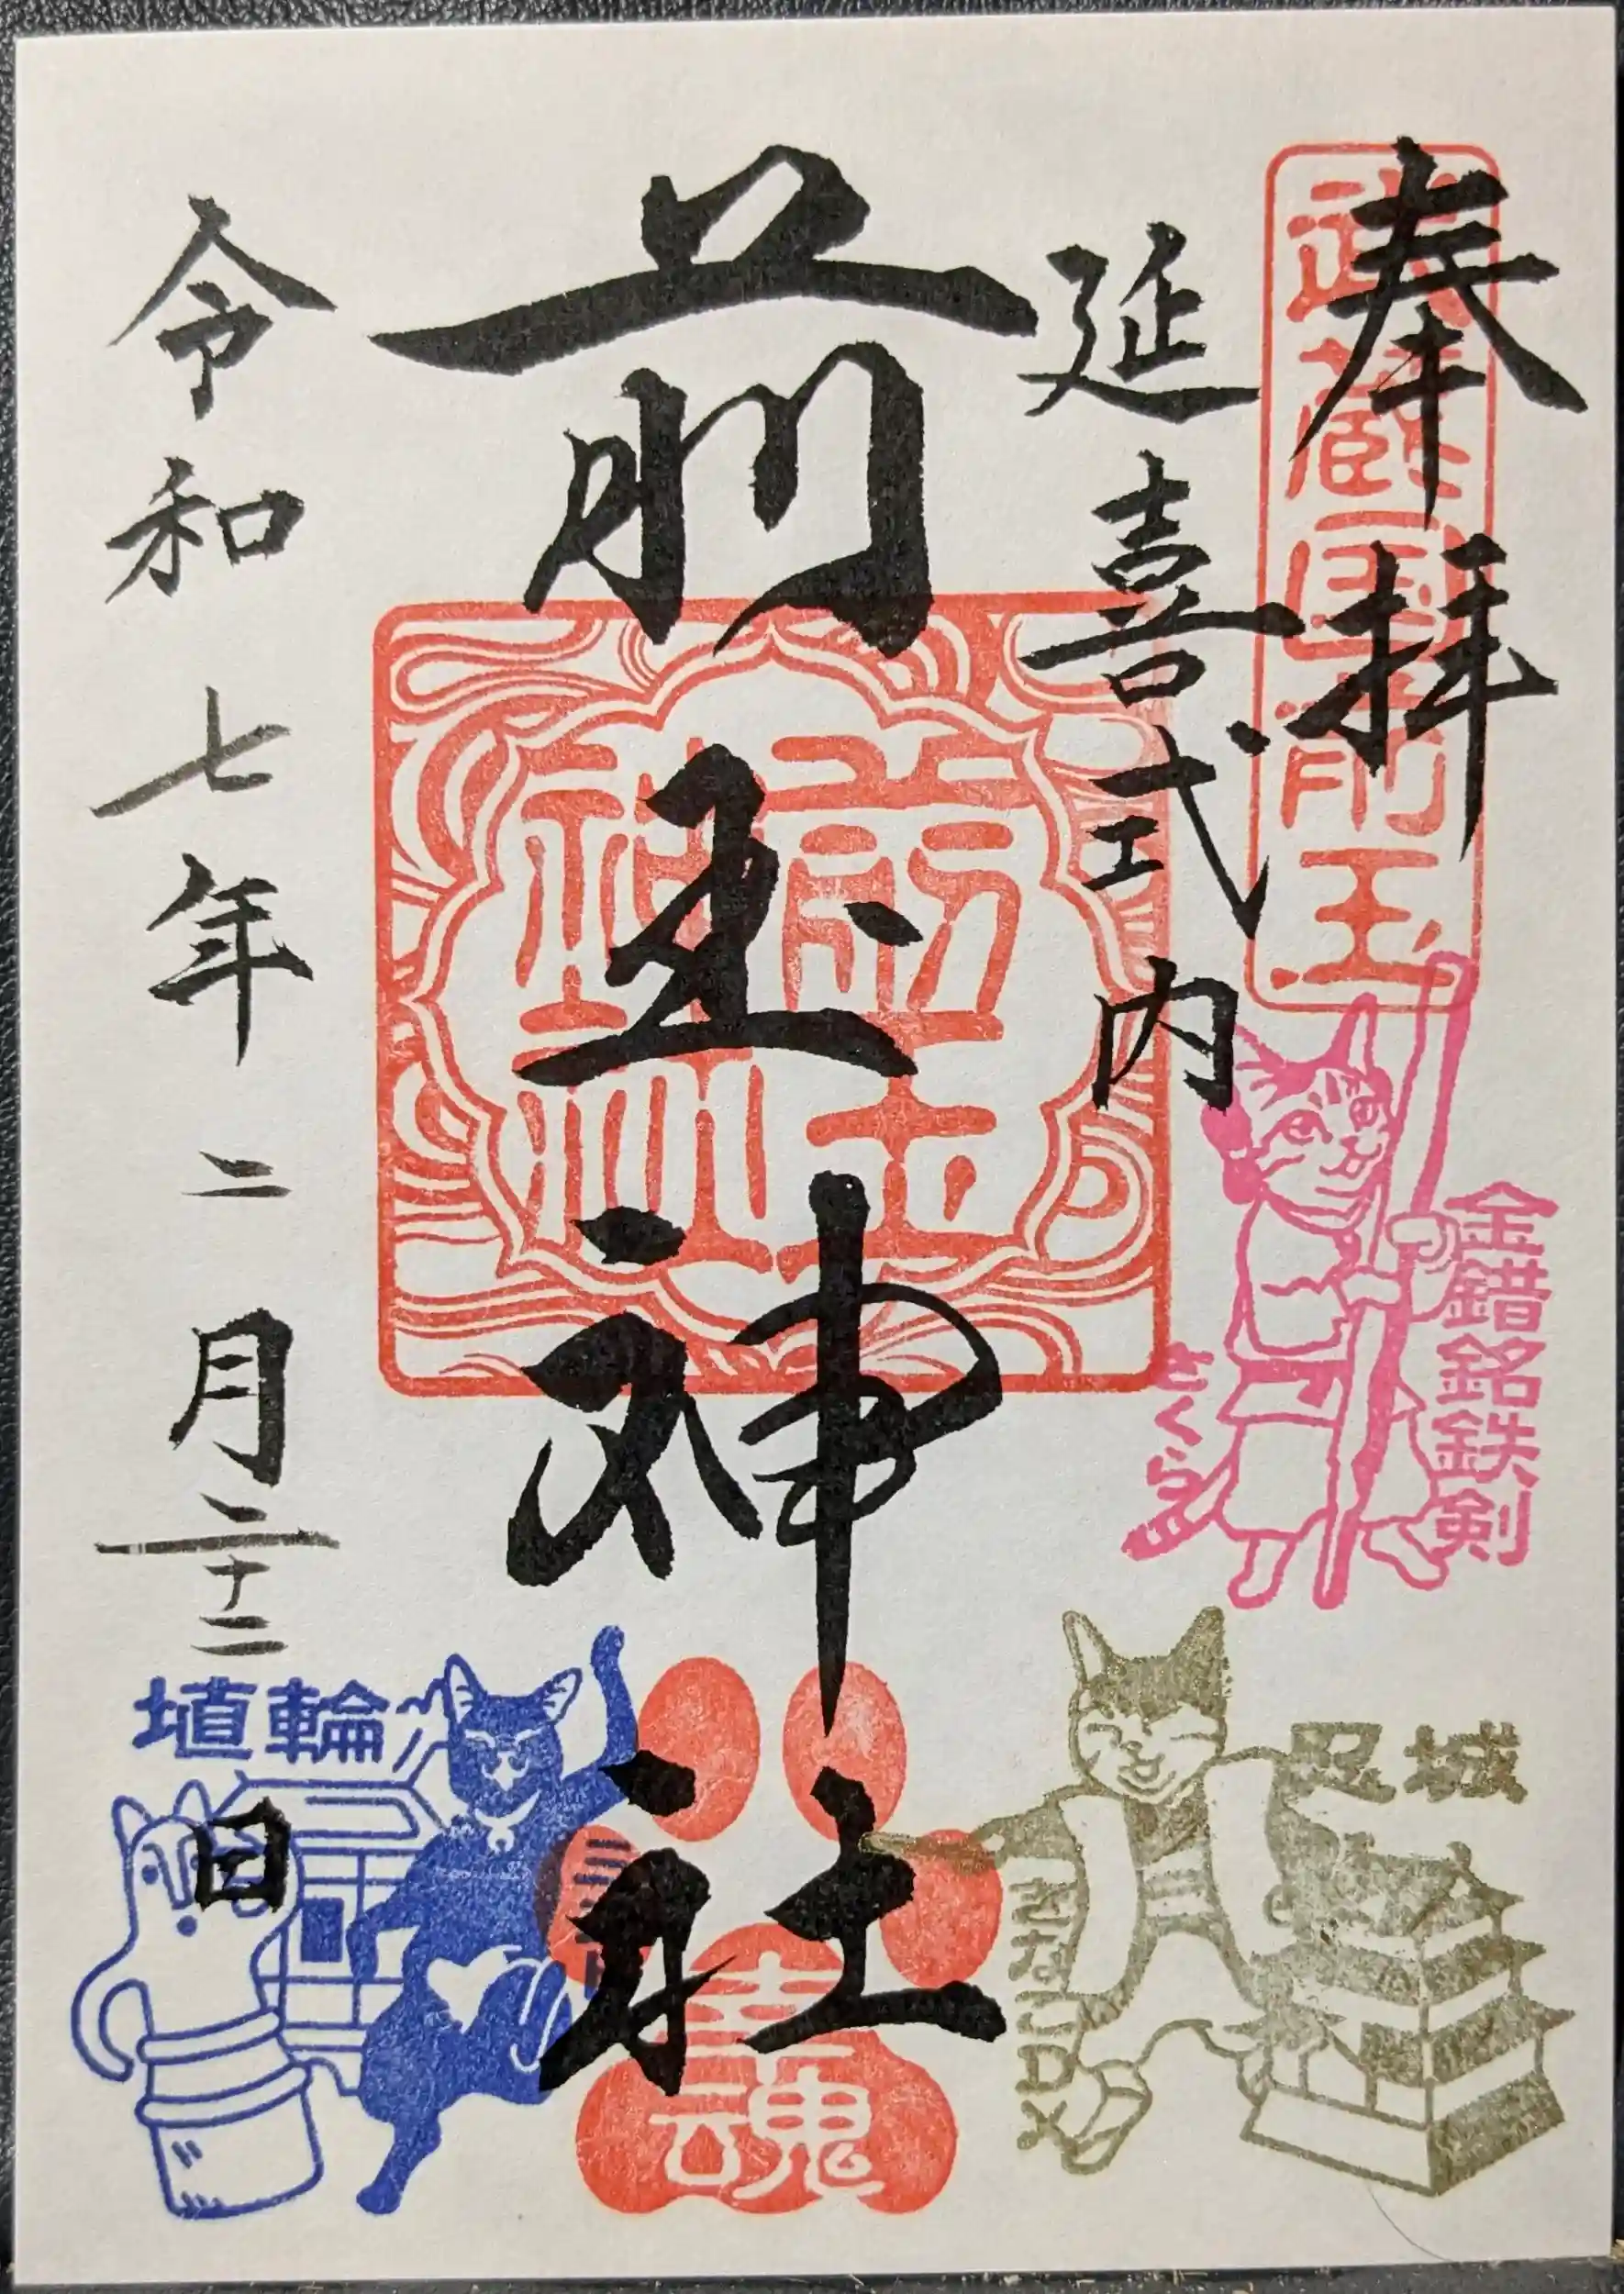 奉拝
武蔵国前玉
延喜式内
前玉神社
前玉神社
令和七年二月二十二日
金錯銘鉄剣
さくら
忍城
きなこDX
埴輪
幸魂